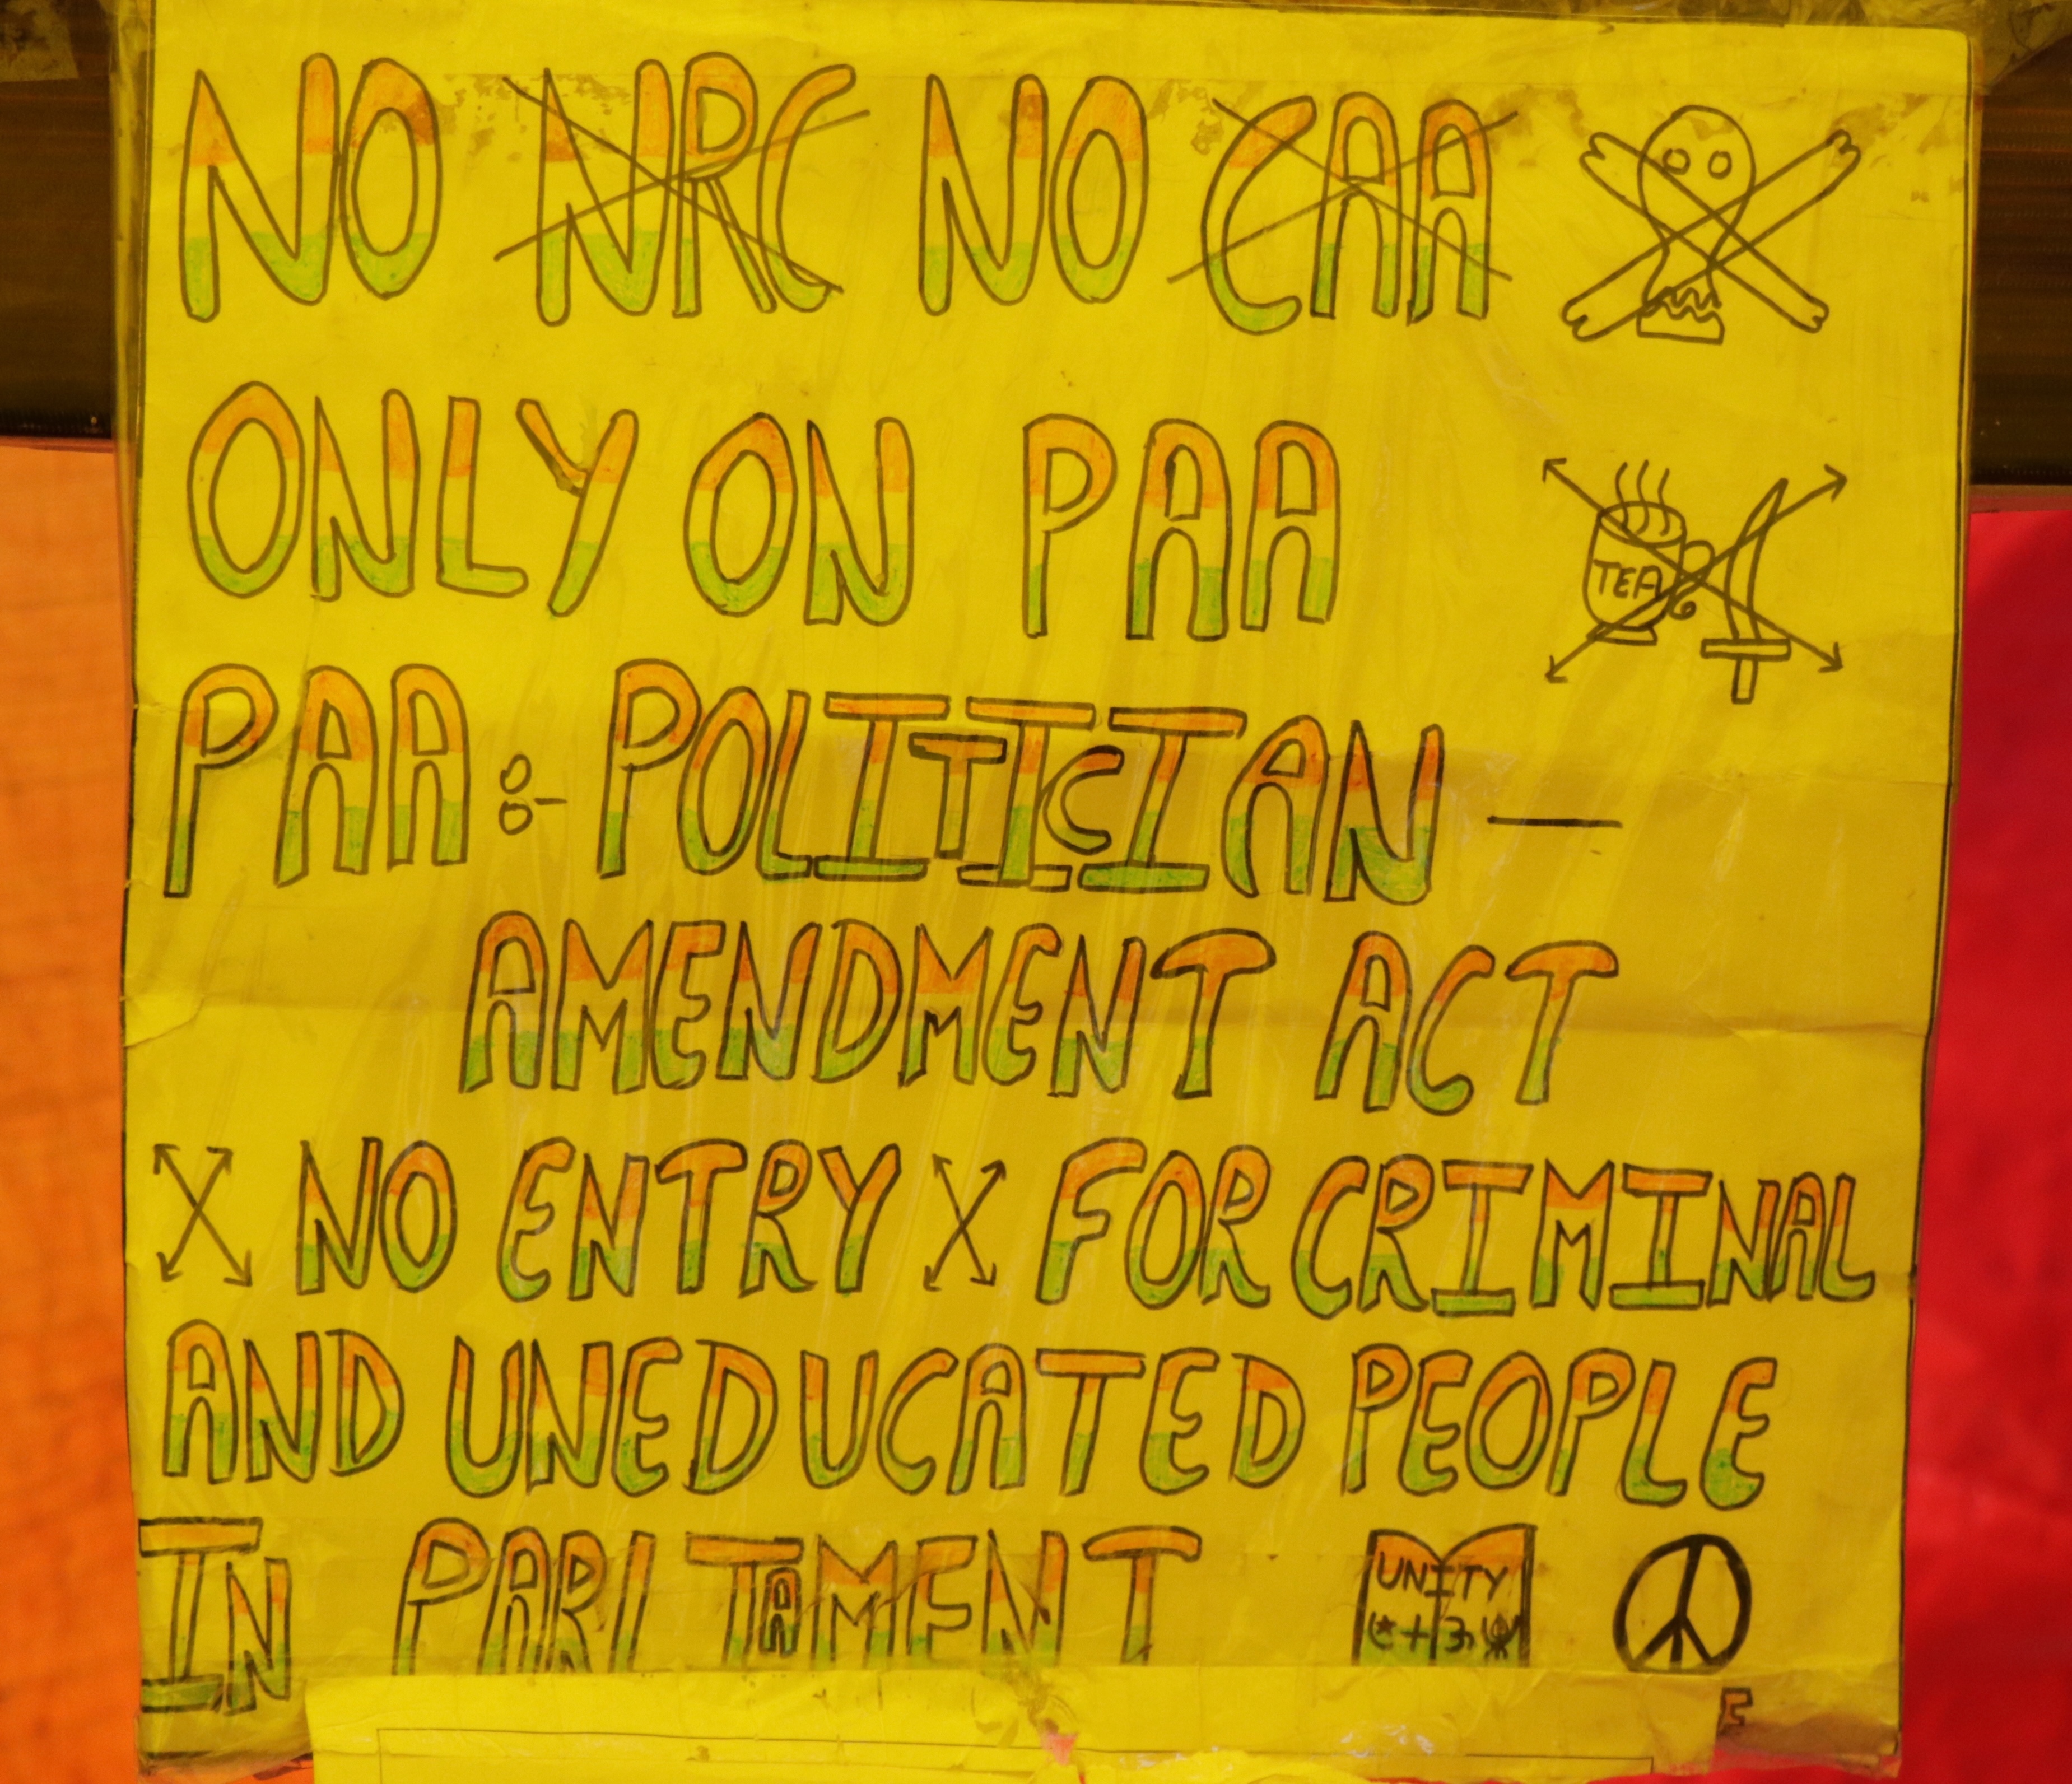 NO NRC NO CAA
ONLY ON PAA
TEA
PAA :- POLITICIAN —
AMENDMENT ACT
X NO ENTRY X FOR CRIMINAL
AND UNEDUCATED PEOPLE
IN PARLIAMENT
UNITY